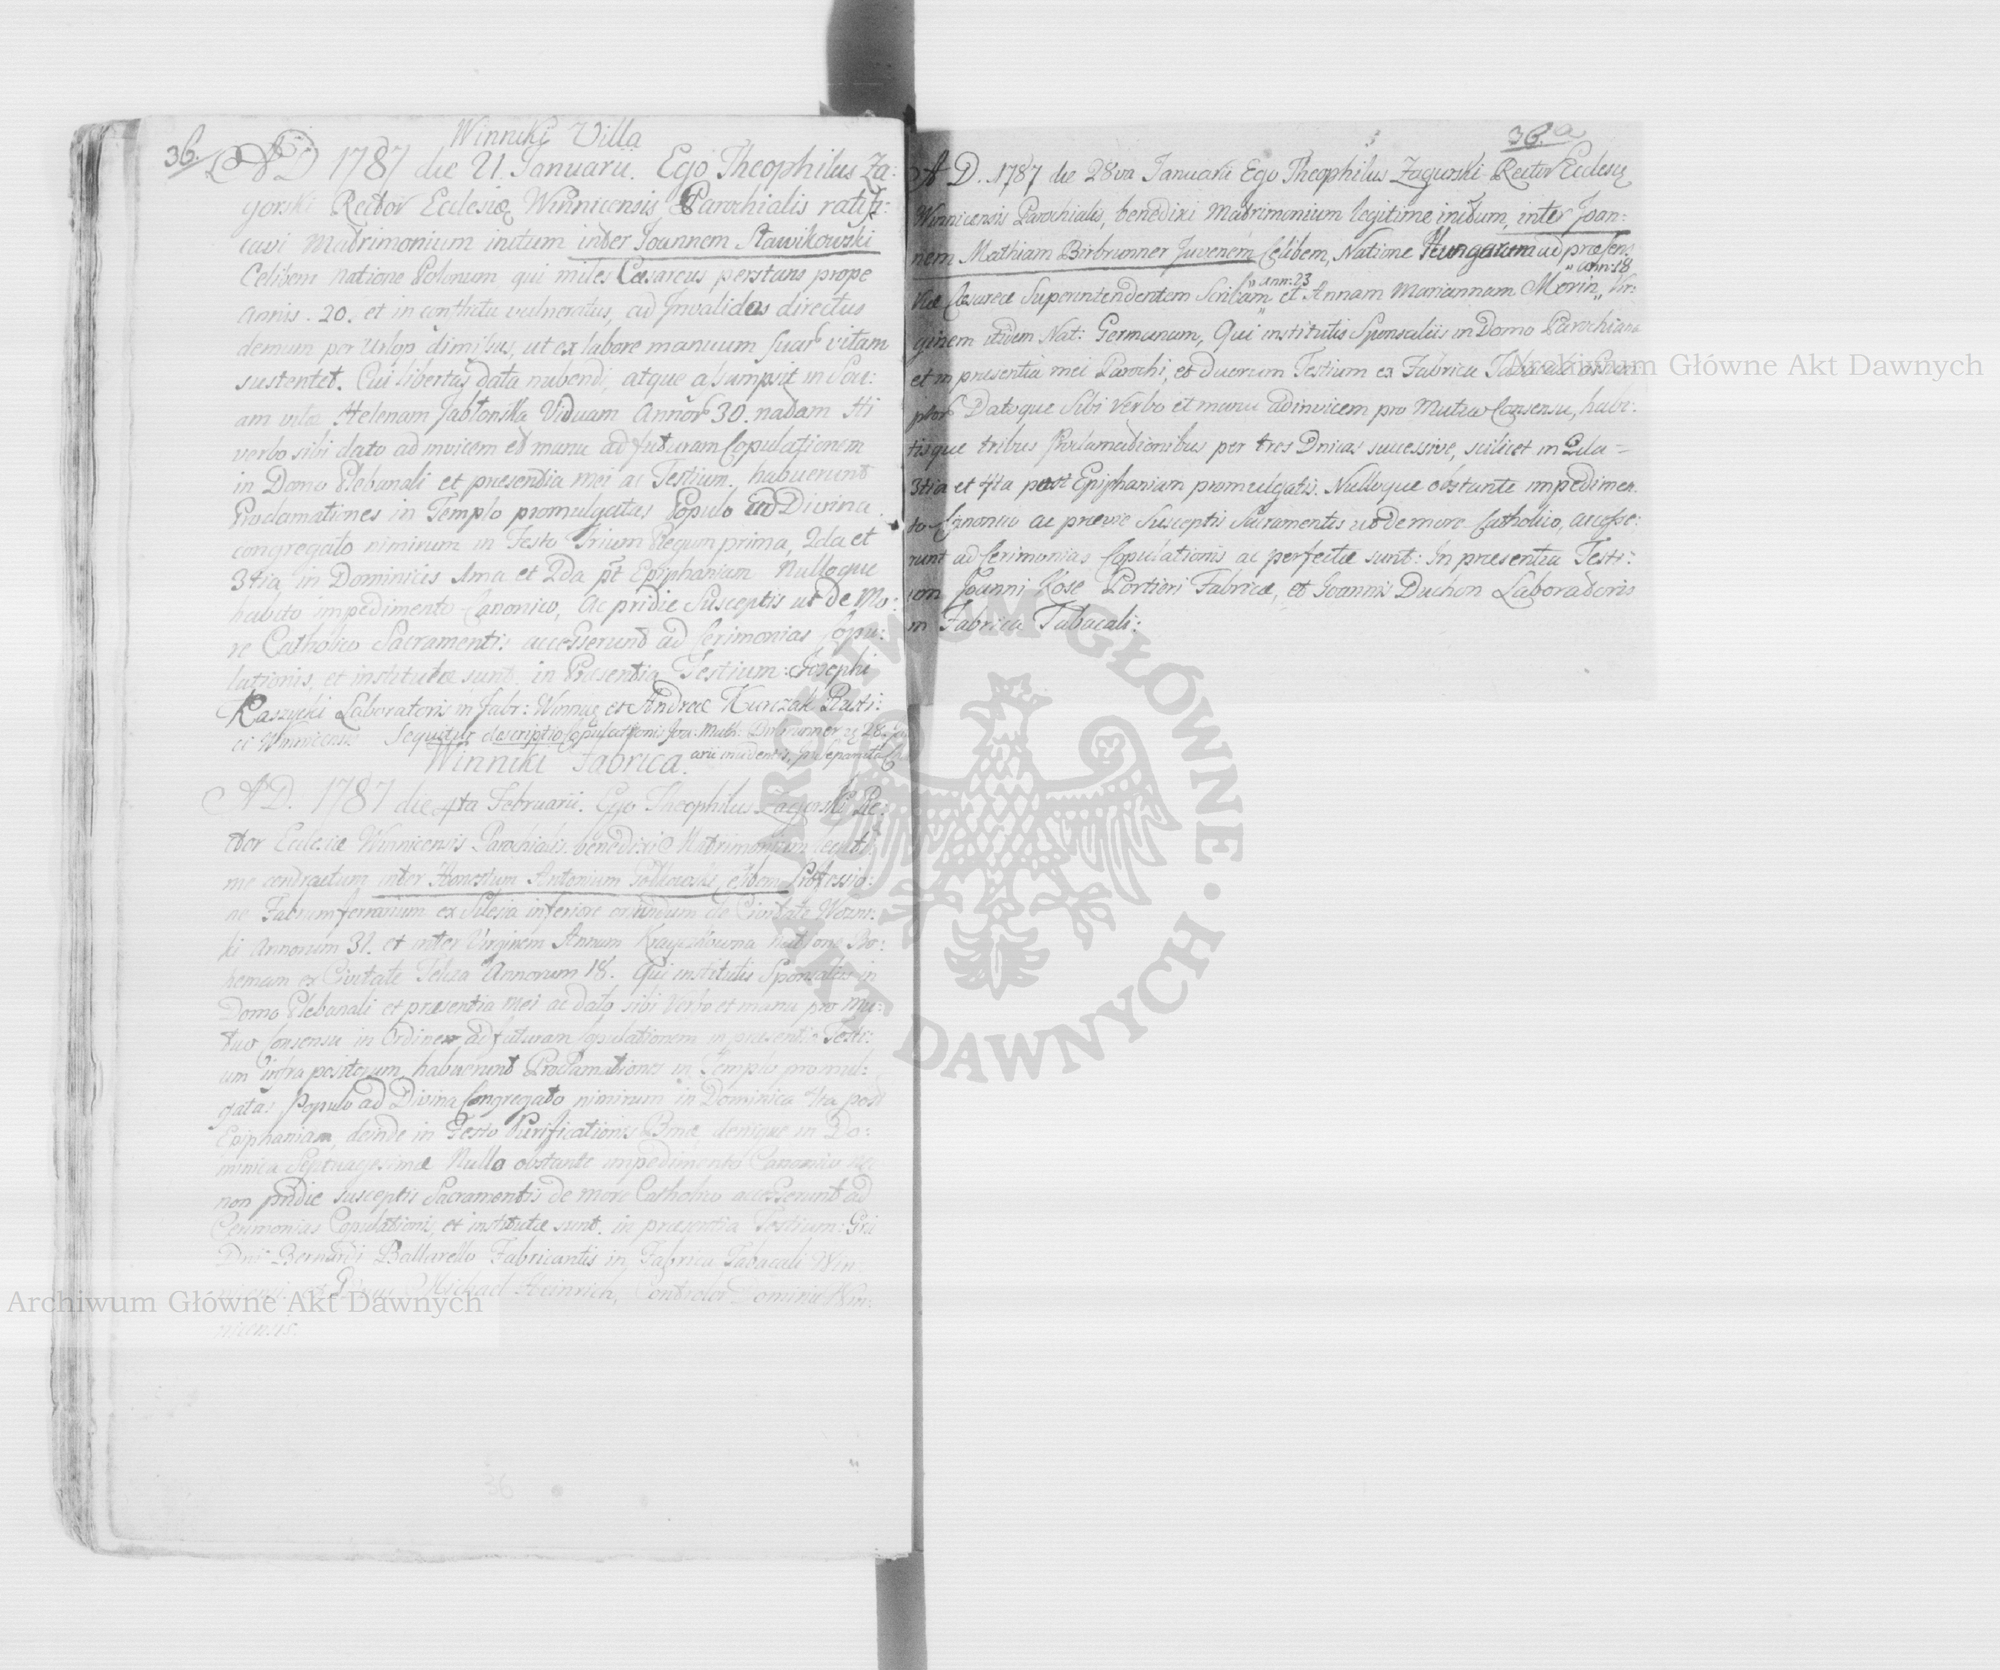 36.
Winniki Villa
AD 1787 die 21. Januarii. Ego Theophilus Za:
gorski Rector Ecclesiæ Winnicensis Parochialis ratifi:
cavi Matrimonium initum inter Joannem Sławikowski
Celibem natione Polonum qui miles Cæsareus perstans prope
annis. 20. et in conflictu vulneratus, ad Invalidas directus
demum per Urlop dimissus, ut ex labore manuum suar vitam
sustentet. Cui libertas data nubendi, atque assumpsit in Soci:
am vitæ Helenam Jabłonska Viduam Annor 30. natam Hi
verbo sibi dato ad invicem et manu ad futuram Copulationem
in Domo Plebanali et præsentia mei ac Testium, habuerunt
Proclamationes in Templo promulgatas Populo ad Divina
congregato nimirum in Festo Trium Regum prima, 2da et
3tia in Dominicis 1ma et 2da pt Epiphaniam Nulloque
habito impedimento Canonico, ac pridie Susceptis ut de Mo:
re Catholico Sacramentis accesserunt ad Cerimonias Copu:
lationis, et institutæ sunt in Præsentia Testium: Josephi
Kaszycki Laboratoris in Fabr: Winny et Andreæ Kurczak Rusti:
ci Winnicensis Sequitur descriptio Copulationis Joa: Math: Birbrunner 28. Janu
arii incidentis, præpo
Winniki Fabrica.
AD. 1787 die 4ta Februarii. Ego Theophilus Zagorski Re:
ctor Ecclesiæ Winnicensis Parochialis benedixi Matrimonium legiti:
me contractum inter Honestum Antonium celibem Professio:
ne Fabrum ferrarium ex Silesia inferiore oriundum de Civitate Wozni:
ki Annorum 31. et inter Virginem Annam natione Bo:
hemam ex Civitate Annorum 18. Qui institutis Sponsaliis in
Domo Plebanali et præsentia mei ac dato sibi Verbo et manu pro mu:
tuo Consensu in Ordine ad futuram Copulationem in præsentia Testi:
um infra positorum, habuerunt Proclamationes in Templo promul:
gatas Populo ad Divina Congregato nimirum in Dominica 4ta post
Epiphaniam, deinde in Festo Purificationis Bmæ, denique in Do:
minica Septuagesimæ Nullo obstante impedimento Canonico nec
non pridie susceptis Sacramentis de more Catholico accesserunt ad
Cerimonias Copulationis, et institutæ sunt in præsentia Testium:
Dni Bernardi Ballarello Fabricantis in Fabrica Tabacali Win
Michael Heinrich, Controlor Dominii Win:
nicensis.
36
36.a
A D. 1787 die 28va Januarii Ego Theophilus Zagurski Rector Ecclesiæ
Winnicensis Parochialis, benedixi Matrimonium legitime initum, inter Joan:
nem Mathiam Birbrunner Juvenem Celibem, Natione Hungarum ad præsens
ann: 18
ann: 23
Viæ Cæsareæ Superintendentem Scribam et Annam Mariannam Morin Vir:
ginem itidem Nat: Germanam, Qui institutis Sponsaliis in Domo Parochiana
et in præsentia mei Parochi, et duorum Testium ex Fabrica Tabacali
Datoque Sibi Verbo et manu adinvicem pro Mutuo Consensu, habi:
tisque tribus Proclamationibus per tres Dnicas successive, scilicet in 2da
3tia et 4ta post Epiphaniam promulgatis. Nulloque obstante impedimen
to Canonico ac prævie Susceptis Sacramentis ut de more Catholico, accesse:
runt ad Cerimonias Copulationis ac perfectæ sunt: In præsentia Testi:
um Joanni Rose Portieri Fabricæ, et Joannis Duchon Laboratoris
in Fabrica Tabacali:
Archiwum Główne Akt Dawnych
Archiwum Główne Akt Dawnych
ARCHIWUM GŁÓWNE · AKT DAWNYCH ·